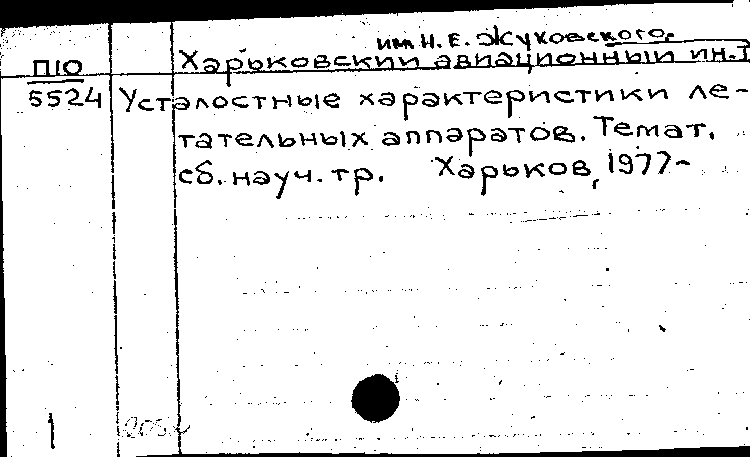 им Н. Е. Жуковского.
П10 Харьковский авиационный ин.т
5524 Усталостные характеристики ле-
тательных аппаратов. Темат.
сб. науч. тр. Харьков, 1977-
1